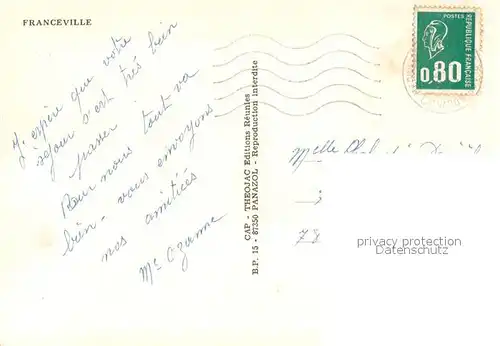 FRANCEVILLE
J'espère que votre
séjour s'est très bien
passer
Pour nous tout va
bien - vous envoyons
nos amitiés
Me Ozanne
CAP - THEOJAC Editions Réunies
B.P. 15 - 87350 PANAZOL - Reproduction Interdite
POSTES
REPUBLIQUE FRANÇAISE
0,80
Melle
78
privacy protection
Datenschutz